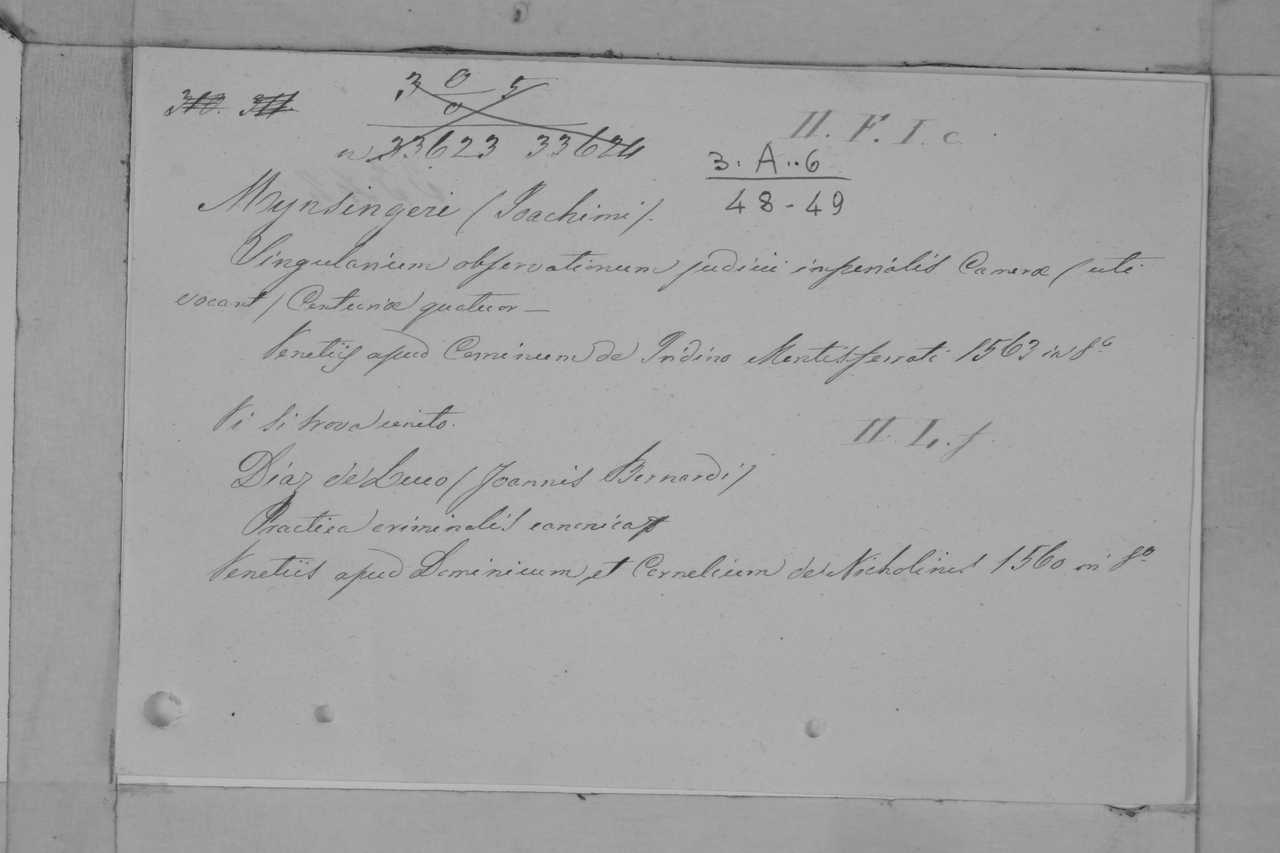 310. 311
3 0 5
0
n 33623 33624
II. F. I. c
3. A..6
48-49
Mynsingeri (Ioachimi).
Singularium observationum judicii imperialis Camerae (uti
vocant) Centuriae quatuor —
Venetijs apud Cominum de Tridino Montisferrati 1563 in 8°
Vi si trova unito.
II. I. f.
Diaz de Luco (Joannis Bernardi)
Practica criminalis canonica
Venetiis apud Dominicum et Cornelium de Nicholinis 1560 in 8°